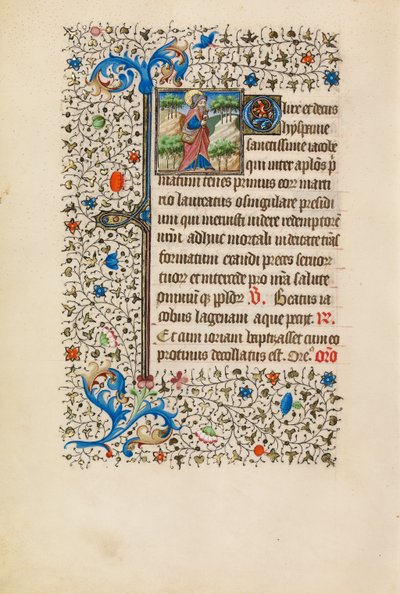 O lux et decus
hyspanie
sanctissime iacobe
qui inter aplos p
matum tenes primus eorum marti
rio laureatus o singulare presidi
um qui meruisti videre redemptorem
nrm adhuc mortali in deitate trās
formatum exaudi preces servor
tuor et intercede pro nrā salute
omniu
V. Beatus ia
cobus lagenam aque petiit. R.
Et cum iosiam baptizasset cum eo
protinus decollatus est. Ore. oro